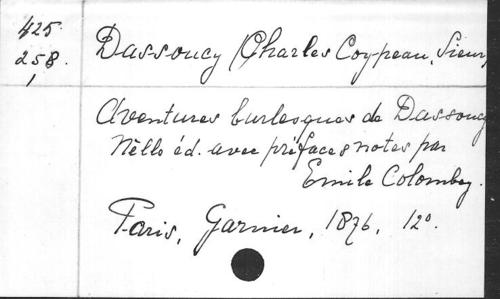 425.
258.
1
Dassoucy (Charles Coypeau, Sieur
Aventures burlesques de Dassoucy
Nelle éd. avec préface & notes par
Emile Colombey.
Paris, Garnier, 1876, 12°.